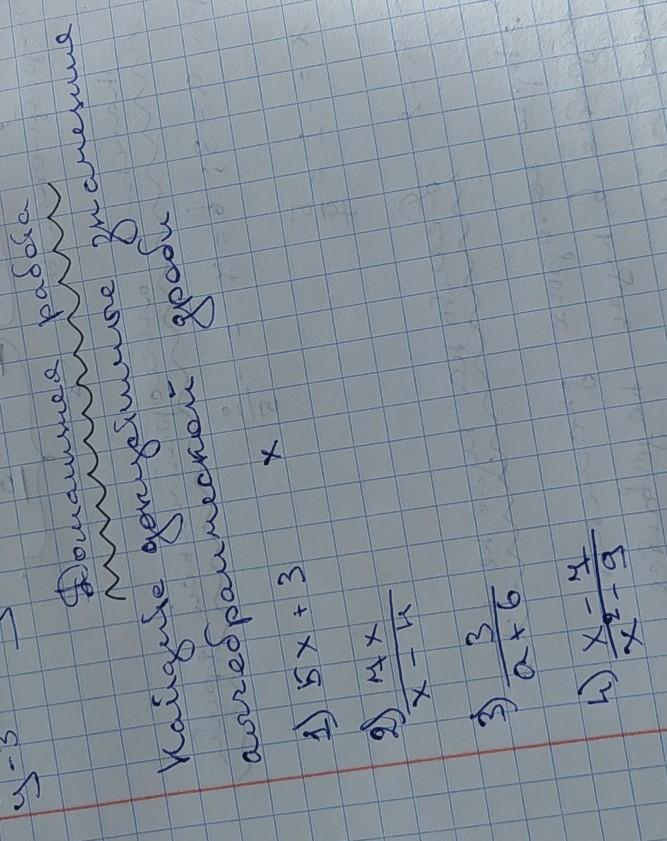 y-3
Домашняя работа
Найдите допустимые значения
алгебраической дроби
x
1) 5x+3
2) 7x/x-4
3) 3/a+6
4) x-7/x²-9